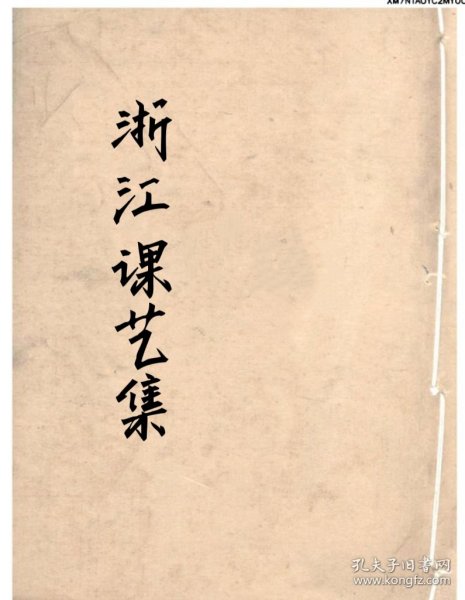 浙江课艺集
孔夫子旧书网
www.kongfz.com